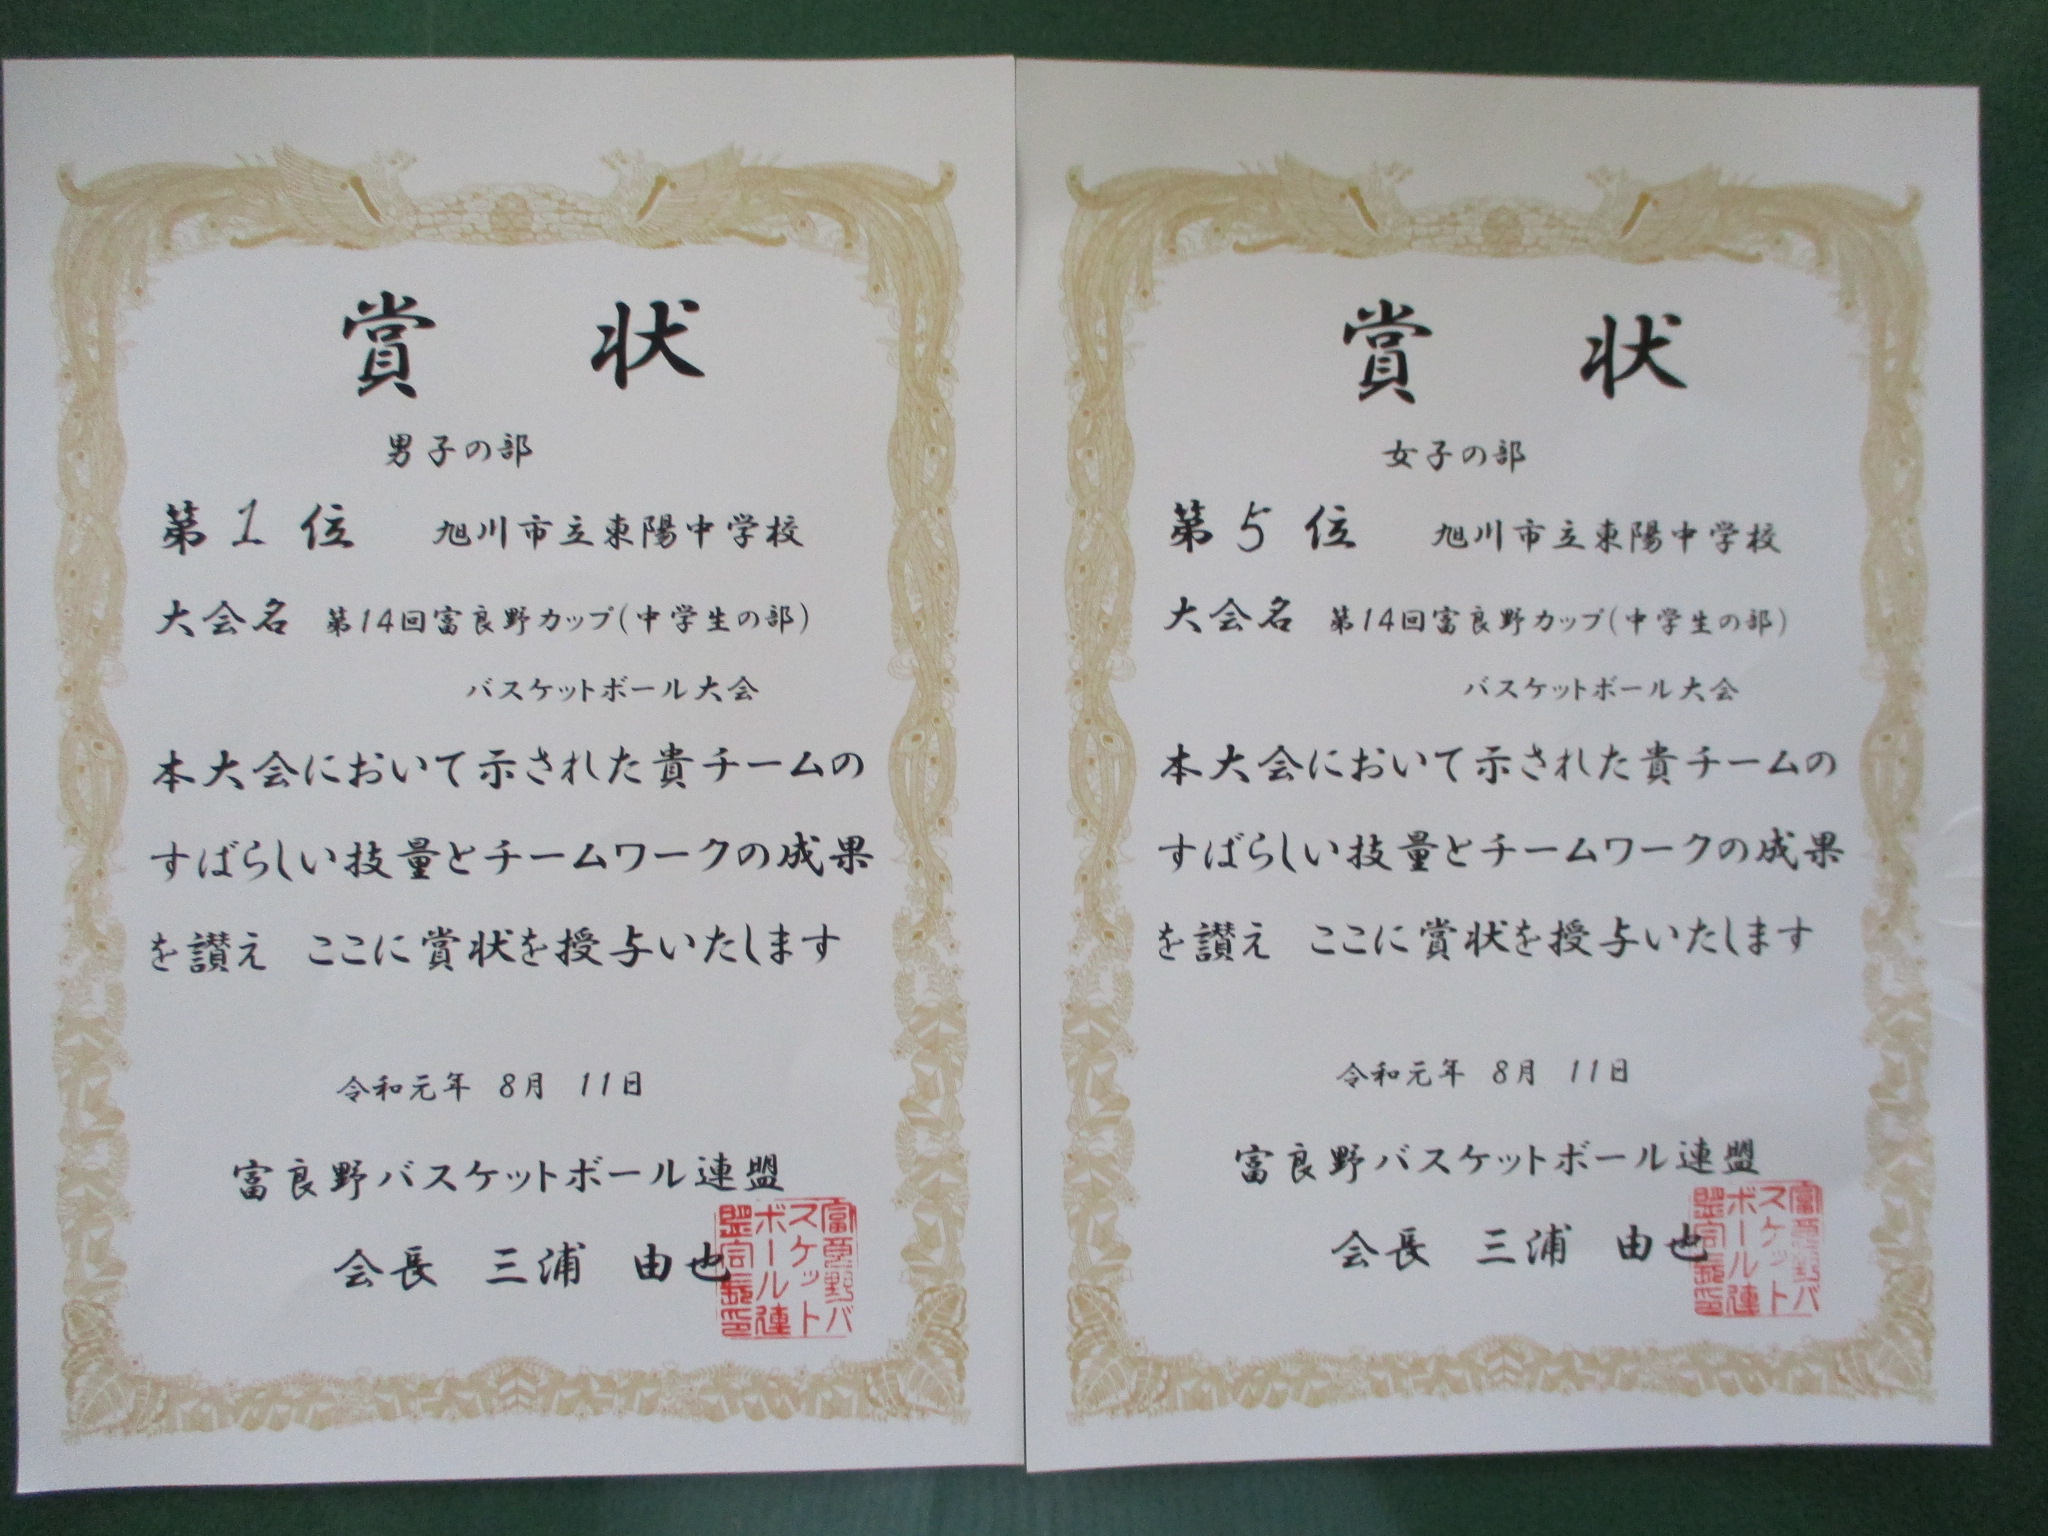 賞 状
男子の部
第1位 旭川市立東陽中学校
大会名 第14回富良野カップ(中学生の部)
バスケットボール大会
本大会において示された貴チームの
すばらしい技量とチームワークの成果
を讃え ここに賞状を授与いたします
令和元年 8月 11日
富良野バスケットボール連盟
会長 三浦 由也
富良野バ
スケット
ボール連
盟会長印
賞 状
女子の部
第5位 旭川市立東陽中学校
大会名 第14回富良野カップ(中学生の部)
バスケットボール大会
本大会において示された貴チームの
すばらしい技量とチームワークの成果
を讃え ここに賞状を授与いたします
令和元年 8月 11日
富良野バスケットボール連盟
会長 三浦 由也
富良野バ
スケット
ボール連
盟会長印